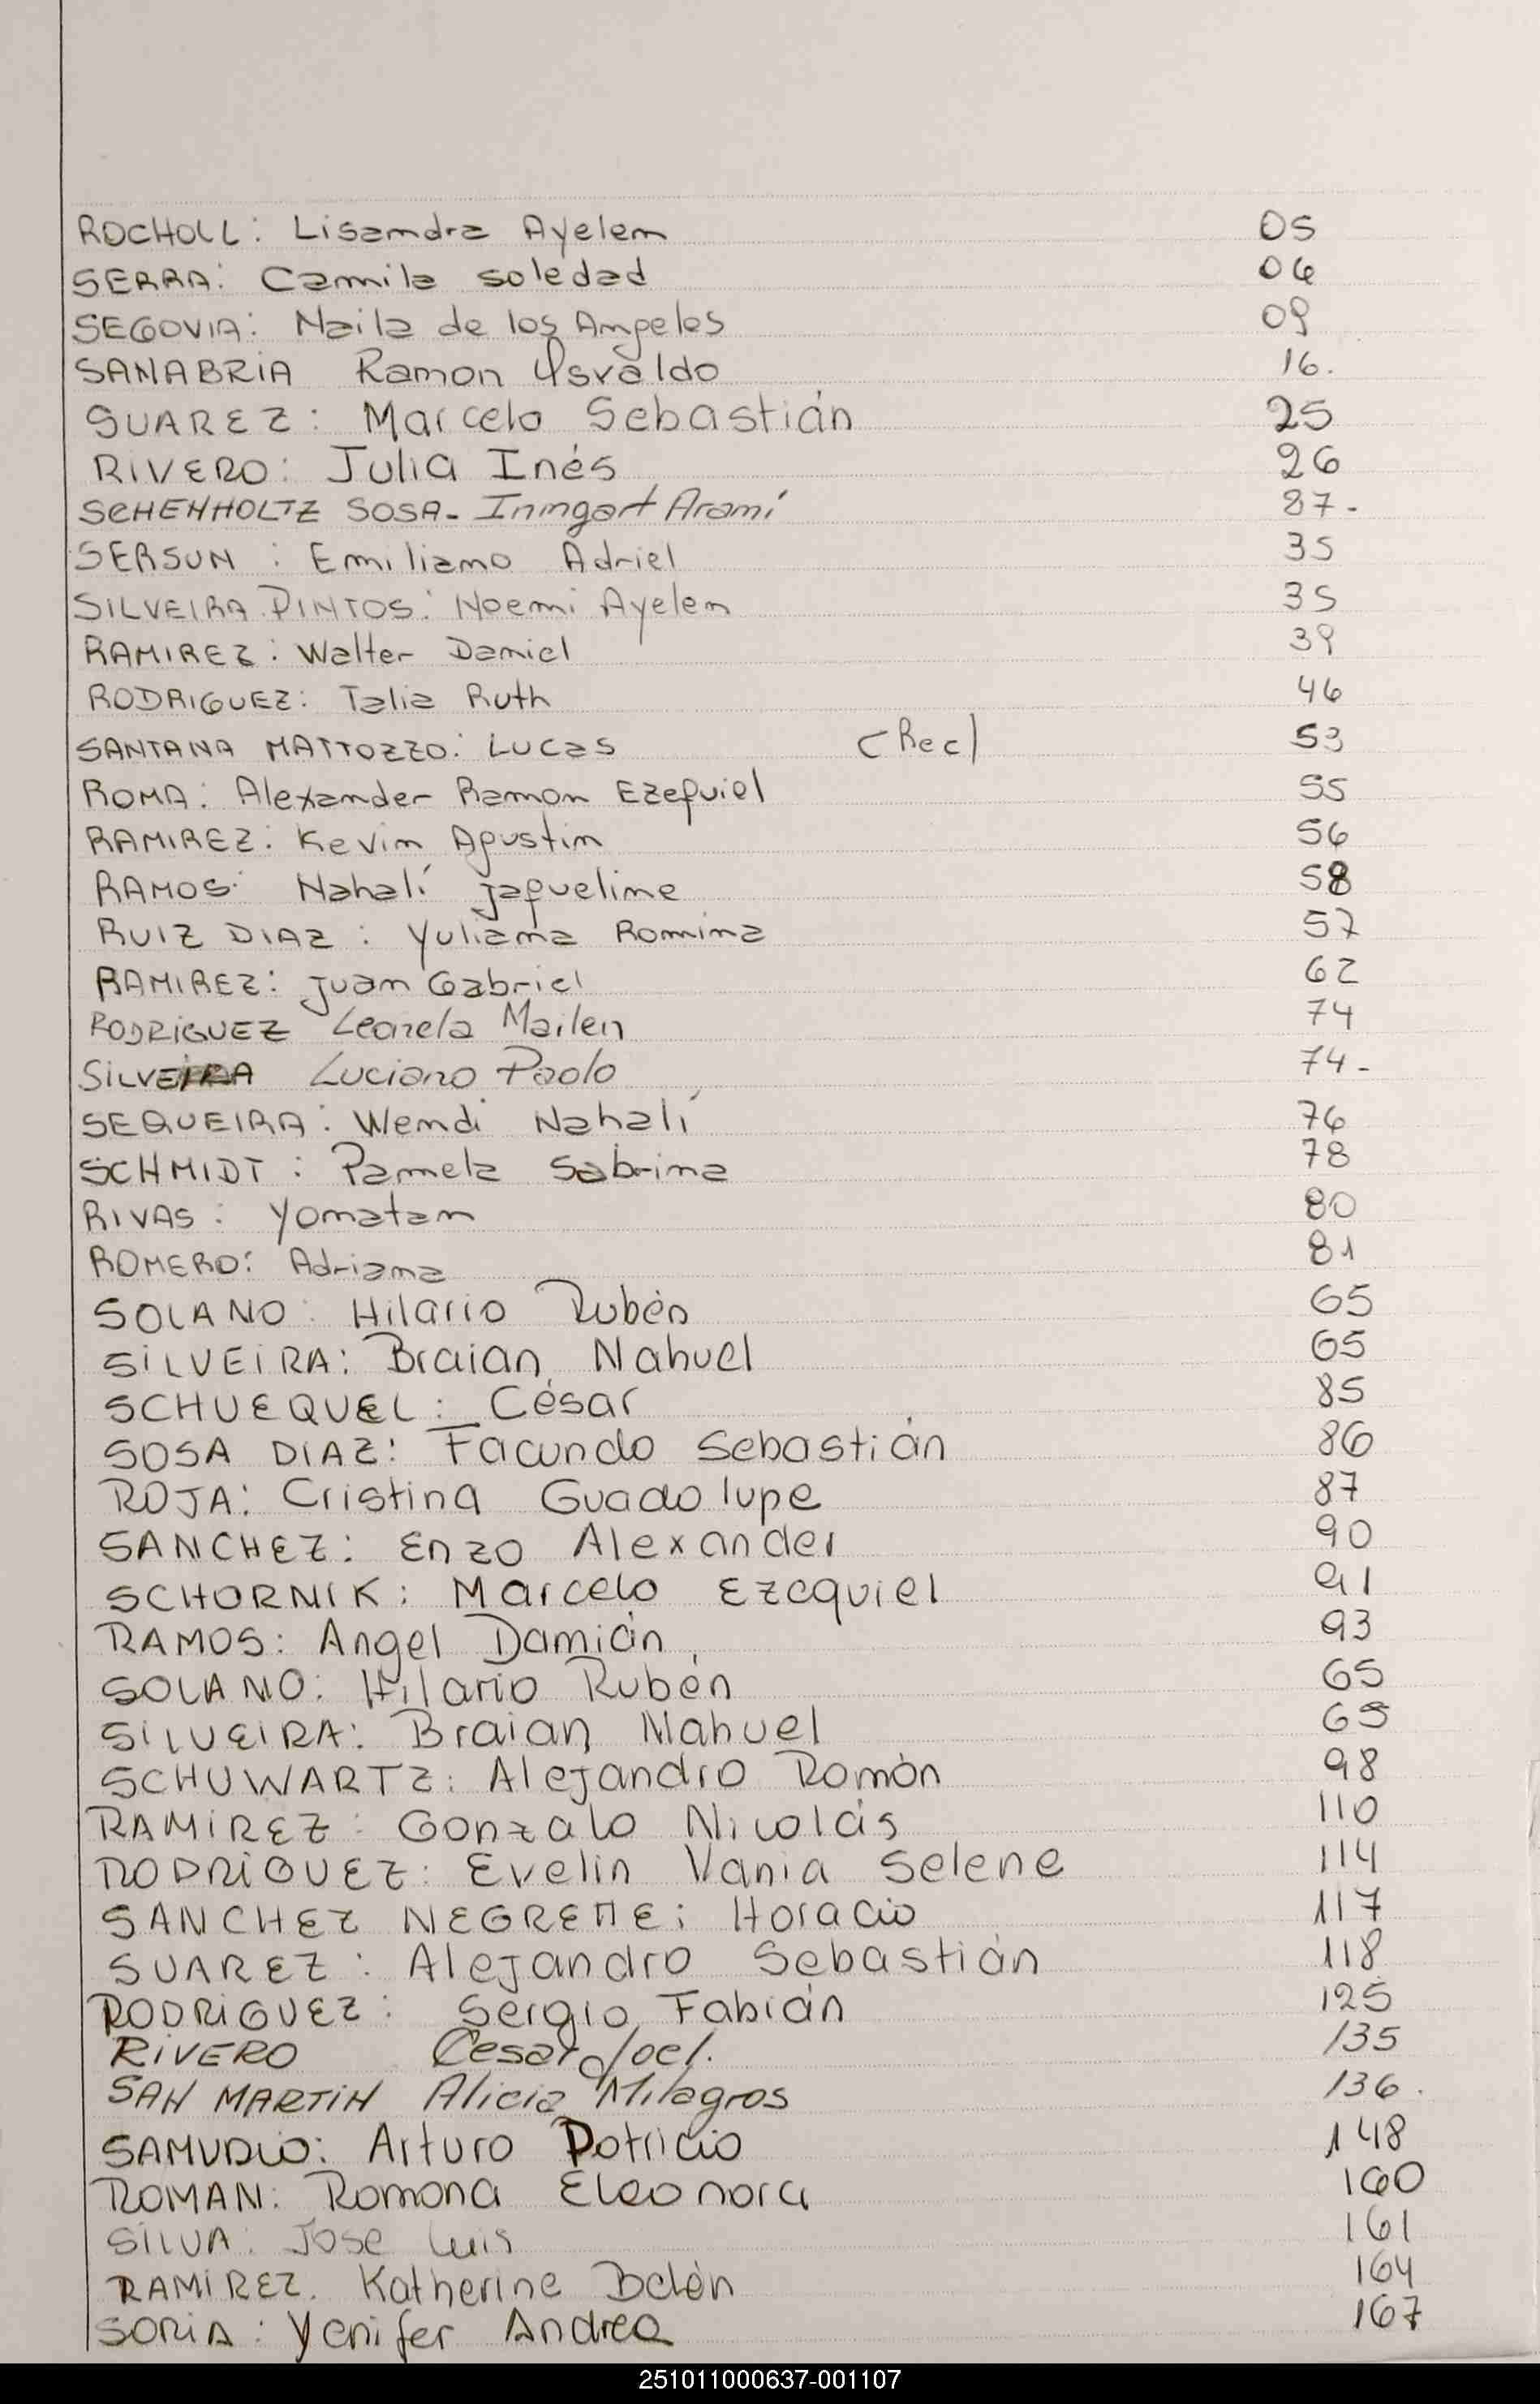 ROCHOLL: Lisandra Ayelen 05
SERRA: Camila Soledad 06
SEGOVIA: Naila de los Angeles 09
SANABRIA Ramon Osvaldo 16.
SUAREZ: Marcelo Sebastián 25
RIVERO: Julia Inés 26
SCHENHOLTZ SOSA- Irmgart Aramí 87-
SERSUN: Emiliano Adriel 35
SILVEIRA PINTOS: Noemi Ayelen 35
RAMIREZ: Walter Daniel 39
RODRIGUEZ: Talia Ruth 46
SANTANA MATTOZZO: Lucas (Rec) 53
ROMA: Alexander Ramon Ezequiel 55
RAMIREZ: Kevin Agustin 56
RAMOS: Nahalí Jaqueline 58
RUIZ DIAZ: Yuliana Romina 57
RAMIREZ: Juan Gabriel 62
RODRIGUEZ Leonela Mailen 74
SILVEIRA Luciano Paolo 74-
SEQUEIRA: Wendi Nahalí 76
SCHMIDT: Pamela Sabrina 78
RIVAS: Yonatan 80
ROMERO: Adriana 81
SOLANO: Hilario Rubén 65
SILVEIRA: Braian Nahuel 65
SCHUEQUEL: César 85
SOSA DIAZ: Facundo Sebastián 86
ROJA: Cristina Guadalupe 87
SANCHEZ: Enzo Alexander 90
SCHORNIK: Marcelo Ezequiel 91
RAMOS: Angel Damián 93
SOLANO: Hilario Rubén 65
SILVEIRA: Braian Nahuel 65
SCHUWARTZ: Alejandro Román 98
RAMIREZ: Gonzalo Nicolás 110
RODRIGUEZ: Evelin Vania Selene 114
SANCHEZ NEGRETTE: Horacio 117
SUAREZ: Alejandro Sebastián 118
RODRIGUEZ: Sergio Fabián 125
RIVERO Cesar Joel. 135
SAN MARTIN Alicia Milagros 136.
SAMUDIO: Arturo Patricio 148
ROMAN: Romona Eleonora 160
SILVA: Jose Luis 161
RAMIREZ. Katherine Belén 164
SORIA: Yenifer Andrea 167
251011000637-001107